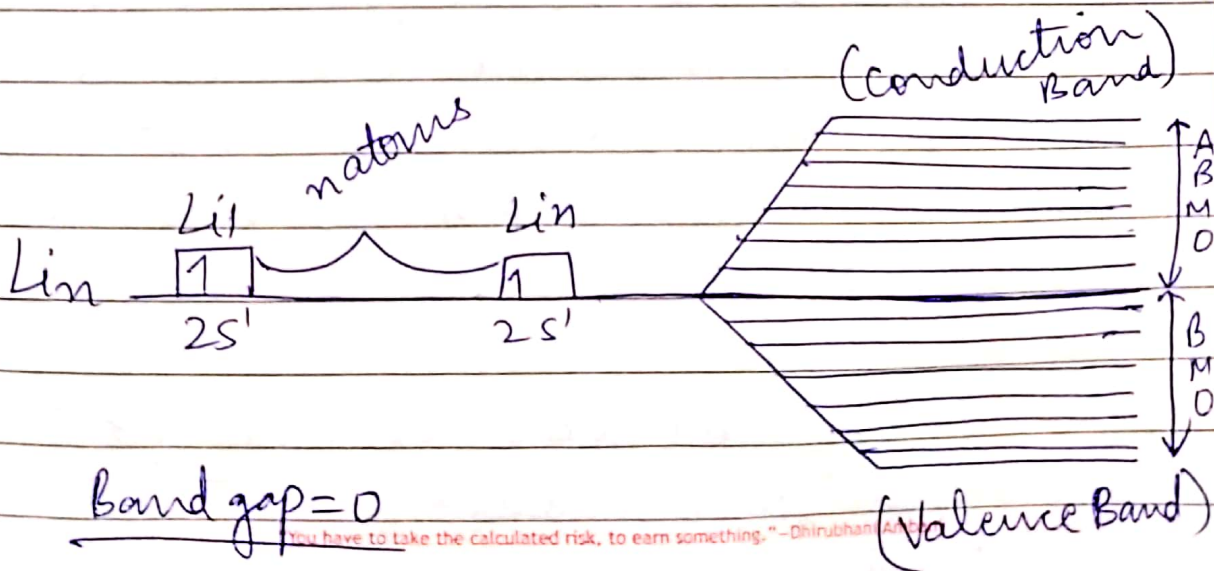 (Conduction
Band)
n atoms
Li1
Lin
Lin
1
1
2S¹
2S¹
A
B
M
O
B
M
O
Band gap=0
(Valence Band)
"You have to take the calculated risk, to earn something."-Dhirubhani